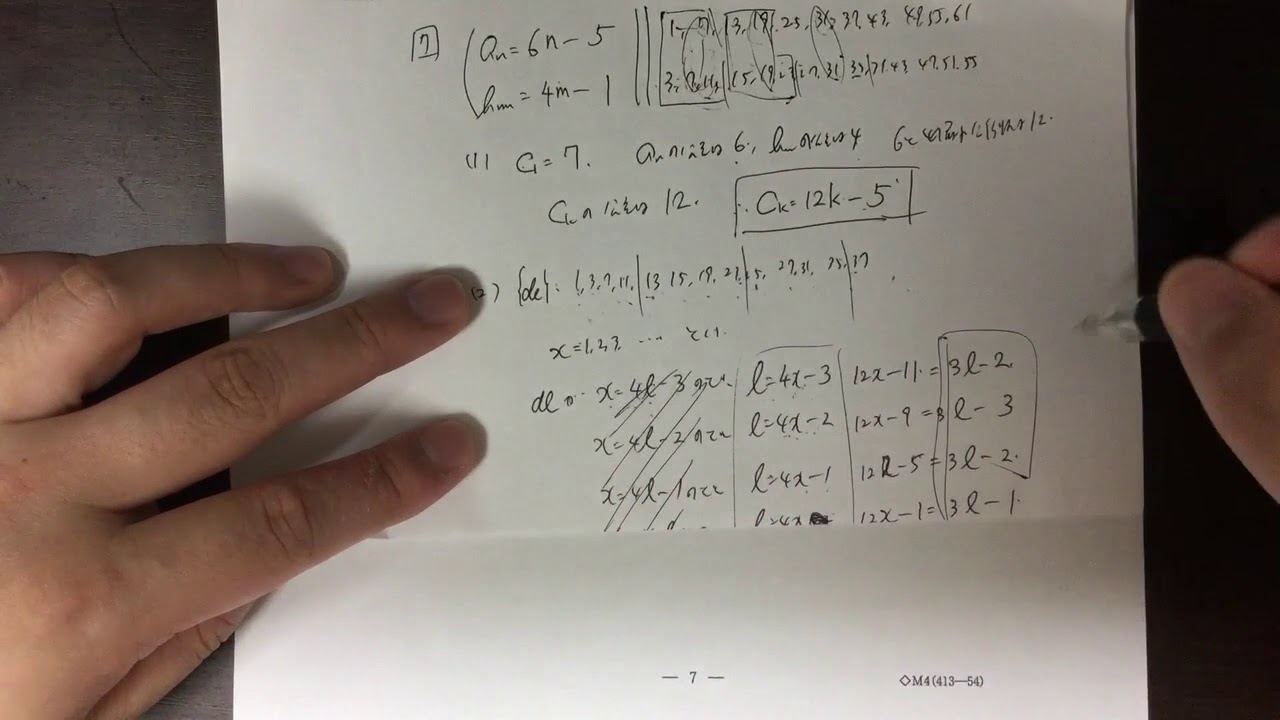 7 aₙ=6n-5 1, 7, 13, 19, 25, 31, 37, 43, 49, 55, 61
bₘ=4m-1 3, 7, 11, 15, 19, 23, 27, 31, 35, 39, 43 47, 51, 55
(1) C₁=7. aₙの公差は6, bₘの公差は4 6と4の最小公倍数は12.
Cₖの公差は12. ∴Cₖ=12k-5
(2) {dℓ}: 1, 3, 7, 11, | 13 15, 19, 23, | 25, 27, 31, 35, | 37
x=1,2,3, … とし.
dℓは x=4ℓ-3のとき ℓ=4x-3 12x-11 = 3ℓ-2.
x=4ℓ-2のとき ℓ=4x-2 12x-9 = 3ℓ-3
x=4ℓ-1のとき ℓ=4x-1 12x-5 = 3ℓ-2.
ℓ=4x 12x-1 = 3ℓ-1.
— 7 —
◇M4(413—54)